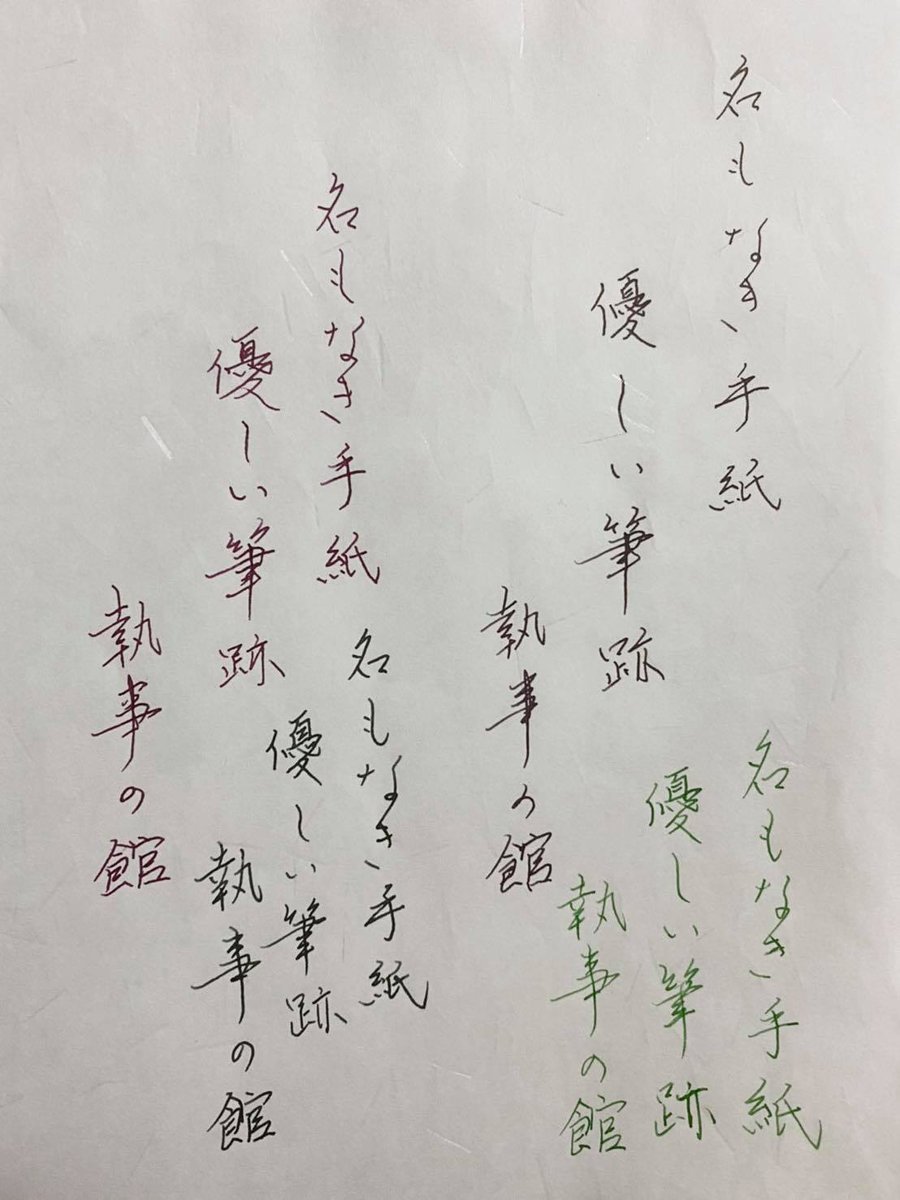 名もなき手紙
優しい筆跡
執事の館
名もなき手紙
優しい筆跡
執事の館
名もなき手紙
優しい筆跡
執事の館
名もなき手紙
優しい筆跡
執事の館